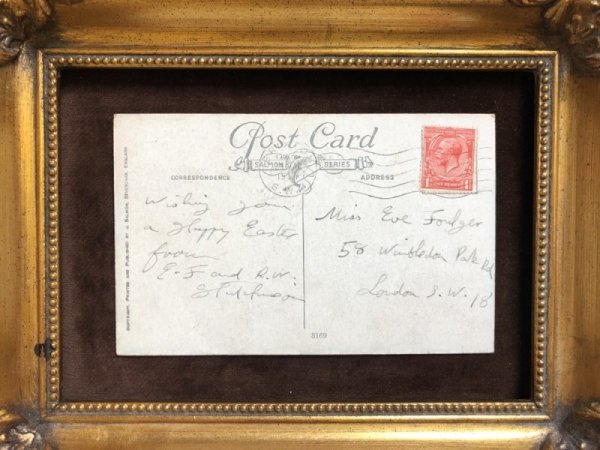 Post Card
SALMON SERIES
CORRESPONDENCE
ADDRESS
Wishing you
a Happy Easter
from
E. F and R. W.
Miss Eve Foulger
58 Wimbledon Park Rd
London S. W. 18
3169
COPYRIGHT. PRINTED AND PUBLISHED BY J. SALMON, SEVENOAKS, ENGLAND